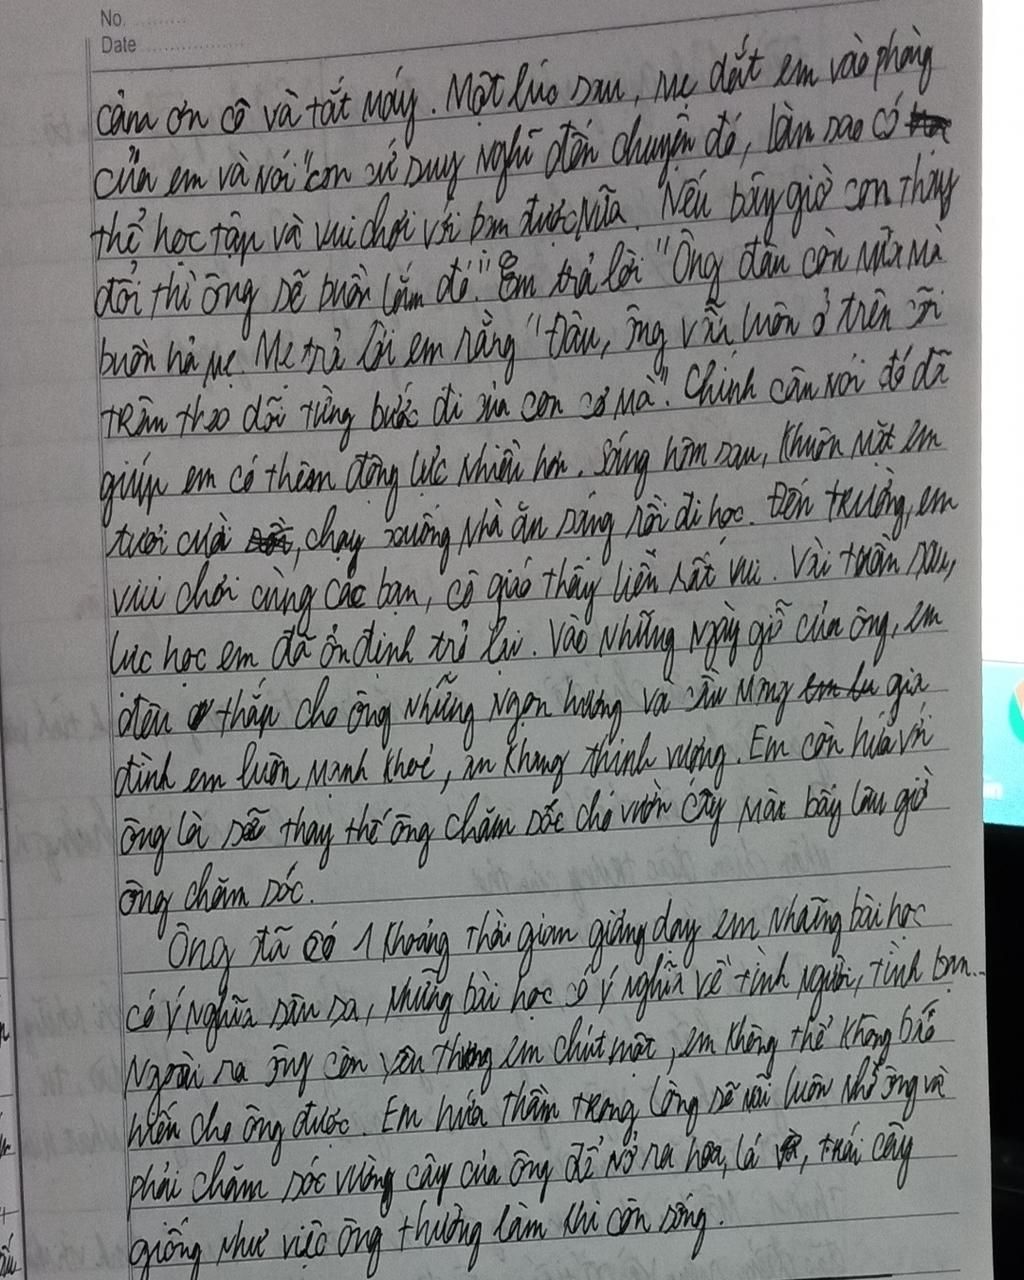 No.
Date
cảm ơn cô và tắt máy. Một lúc sau, mẹ dắt em vào phòng
của em và nói "con cứ suy nghĩ đến chuyện đó, làm sao có
thể học tập và vui chơi với bạn được nữa. Nếu bây giờ con thay
đổi thì ông sẽ buồn lắm đó". Em trả lời "Ông đâu còn nữa mà
buồn hả mẹ. Mẹ trả lời em rằng "Đâu, ông vẫn luôn ở trên cõi
trần theo dõi từng bước đi của con cơ mà". Chính câu nói đó đã
giúp em có thêm động lực nhiều hơn. Sáng hôm sau, khuôn mặt em
tươi cười, chạy xuống nhà ăn sáng rồi đi học. Đến trường, em
vui chơi cùng các bạn, cô giáo thấy liền rất vui. Vài tuần sau,
lực học em đã ổn định trở lại. Vào những ngày giỗ của ông, em
đều thắp cho ông những ngọn hương và cầu mong gia
đình em luôn mạnh khoẻ, an khang thịnh vượng. Em còn hứa với
ông là sẽ thay thế ông chăm sóc cho vườn cây mà bấy lâu giờ
ông chăm sóc.
Ông đã có 1 khoảng thời gian giảng dạy em những bài học
có ý nghĩa sâu sa, những bài học có ý nghĩa về tình người, tình bạn...
Ngoài ra ông còn yêu thương em chút một, em không thể không báo
hiếu cho ông được. Em hứa thầm trong lòng sẽ mãi luôn nhớ ông và
phải chăm sóc vường cây của ông để nở ra hoa, lá, trái cây
giống như việc ông thường làm khi còn sống.